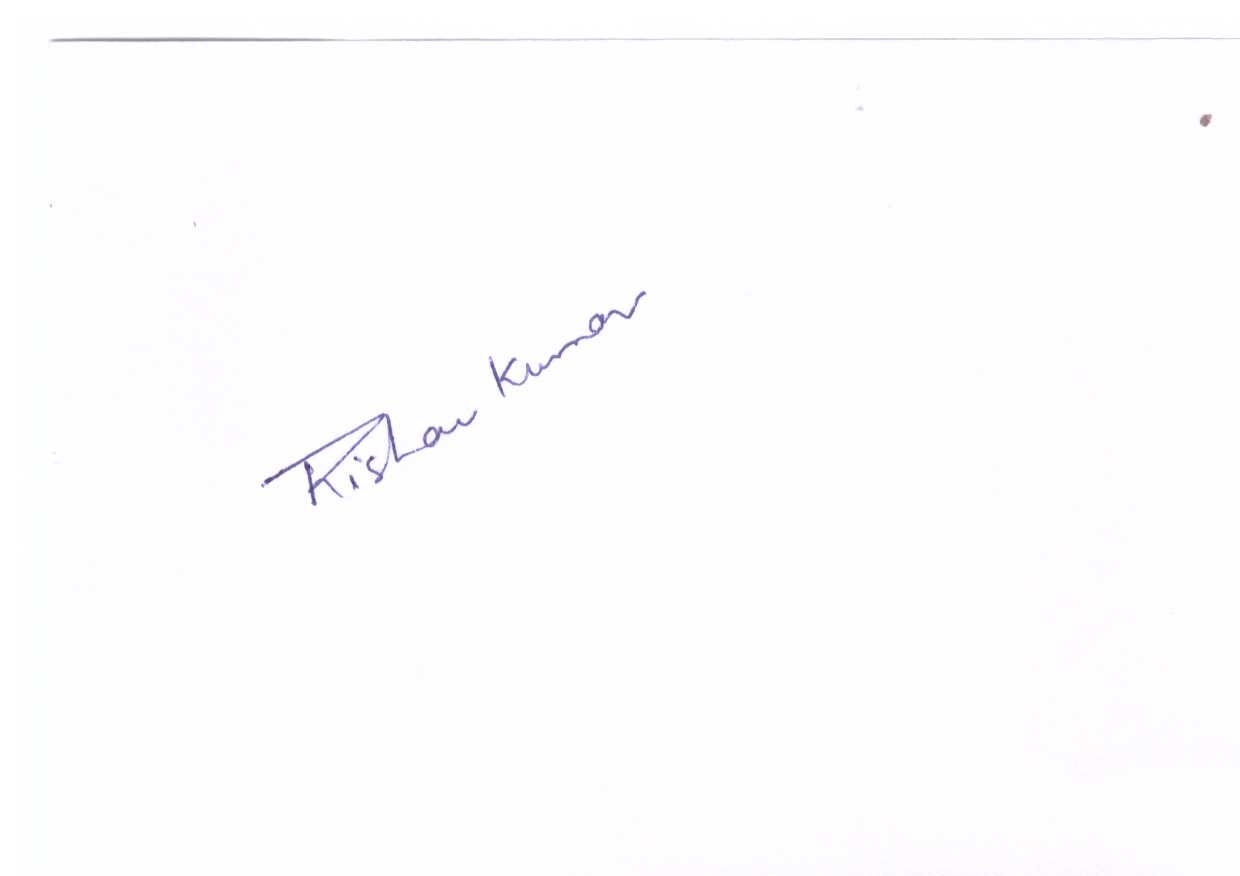 Kishav Kumar